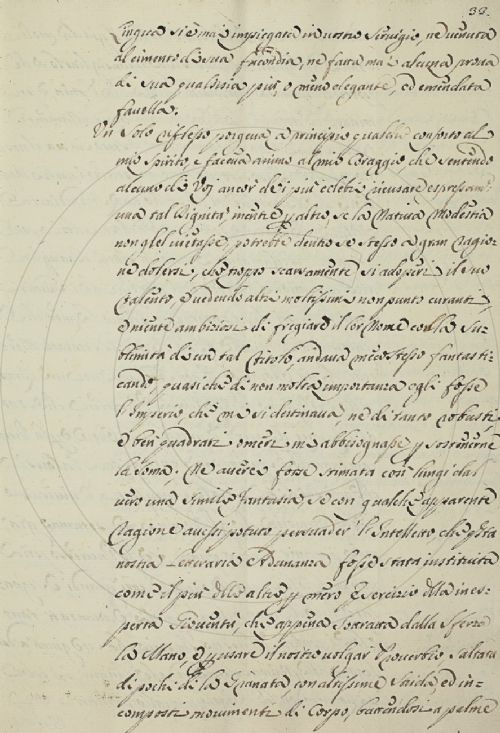 33.
Lingua si è mai impiegata in vostro Servigio, ne venuta
al cimento di sua Facondia, ne fatta mai alcuna prova
di sua qualsisia più, o meno elegante, ed emendata
favella.
Un solo riflesso porgeva a principio qualche conforto al
mio spirito, e faceva animo al mio Coraggio, che sentendo
alcuno di Voj ancor de i più celebri ricusare espressam.te
una tal Dignità, mentre p altro, se la Natura Modestia
non glel vietasse, potrebbe dentro se stesso a gran ragio=
ne dolersi, che troppo scarsamente si adopri il suo
Talento, e vedendo altri moltissimi non punto curanti,
e niente ambiziosi di fregiare il lor Nome colla Su=
blimità di un tal Titolo, andava meco stesso fantasti=
cando, quasi che di non molta importanza egli fosse
l'Imperio che me si destinava ne di tanto robusti,
e ben quadrati omeri mi abbisognasse p sostenerne
la soma. Ne averei forse stimata così lungi dal
vero una simile fantasia, se con qualche apparente
ragione avessi potuto persuader l'Intelletto che q.sta
nostra Letteraria Adunanza fosse stata instituita
come il più delle altre p mero Esercizio della ines=
perta Gioventù, che appena sottratta dalla sferza
la Mano, e p usare il nostro volgar Proverbio saltata
di pochi dì la Granata, con altissime strida ed in=
composti movimenti di Corpo, battendosi a palme